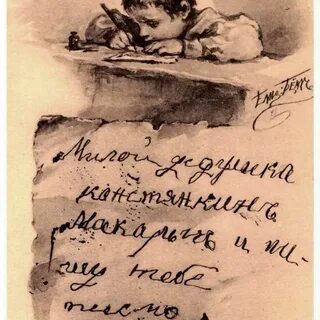 Елиз. Бемъ
Милой дедушка
констянкинъ
Макарычъ и пи-
шу тебе
письмо